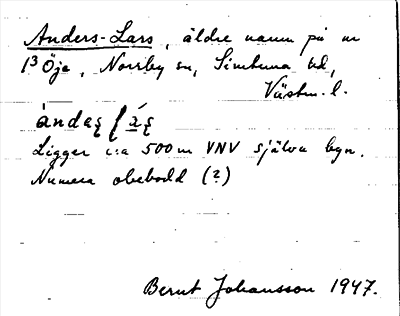 Anders-Lars, äldre namn på nr
1³ Öja, Norrby sn, Simtuna hd,
Västm. l.
Ligger c:a 500 m VNV själva byn.
Numera obebodd (?)
Bernt Johansson 1947.